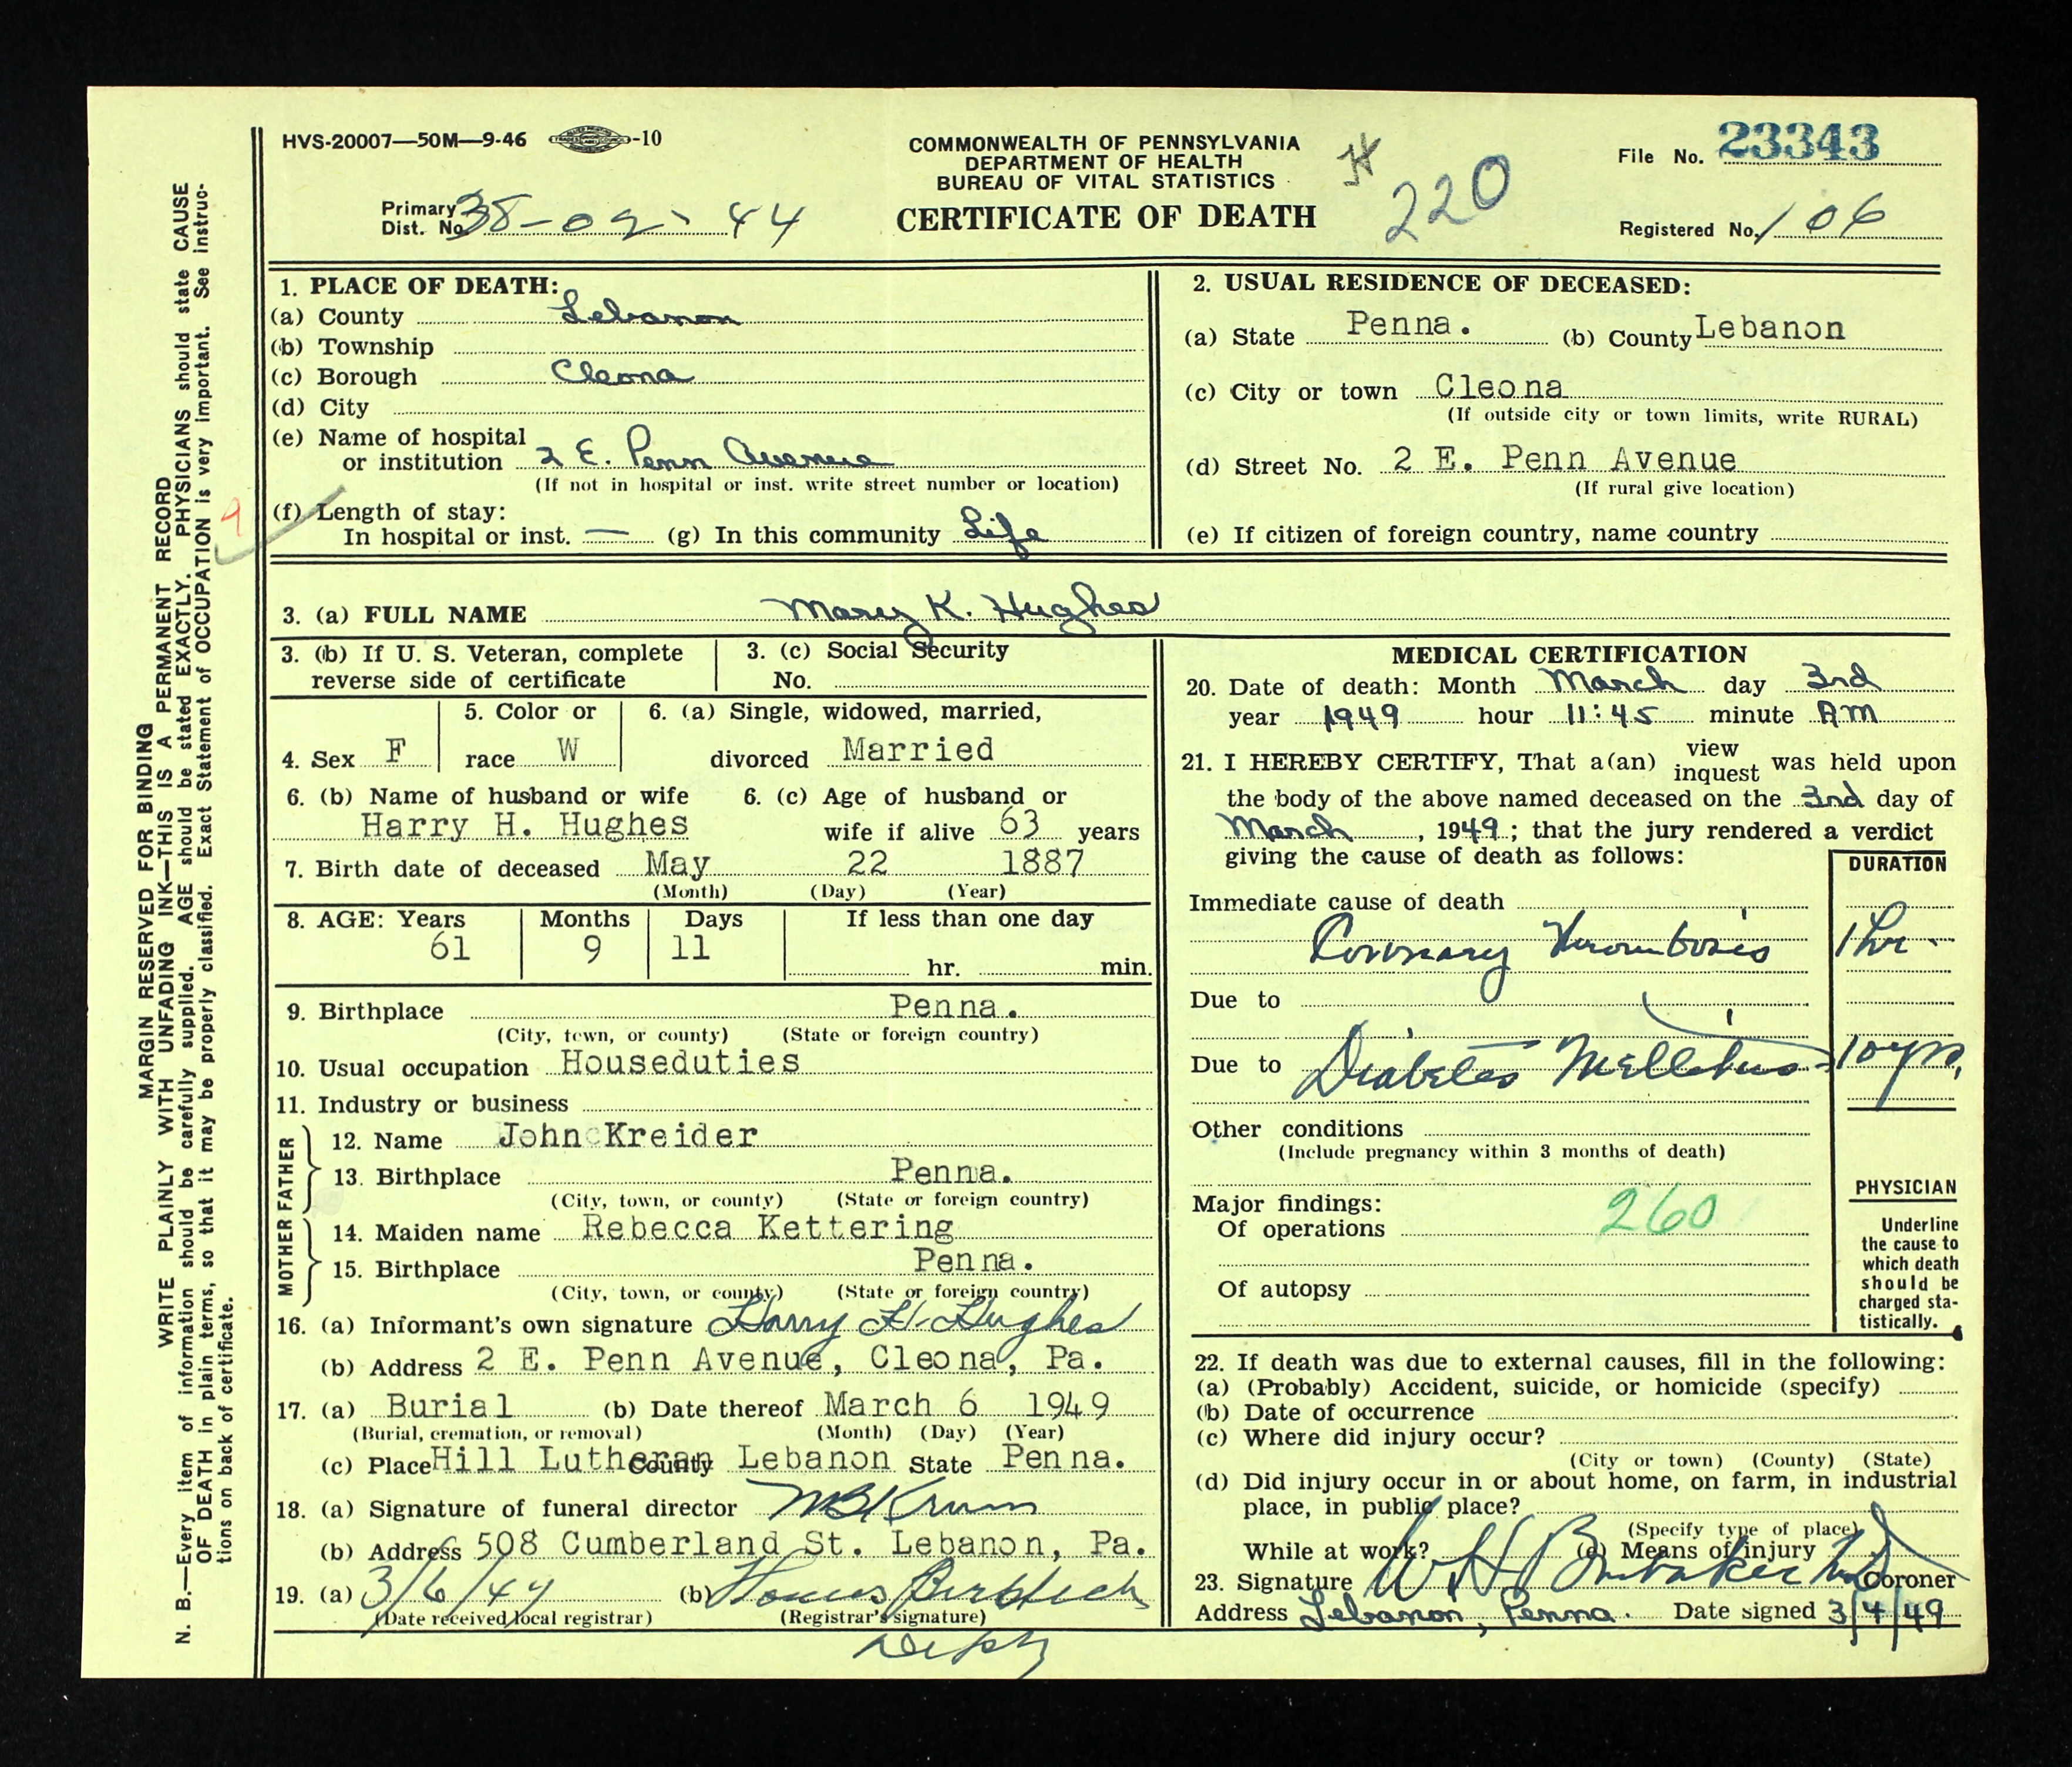 HVS-20007—50M—9-46 -10
COMMONWEALTH OF PENNSYLVANIA
DEPARTMENT OF HEALTH
BUREAU OF VITAL STATISTICS
CERTIFICATE OF DEATH
220
File No. 23343
Primary
Dist. No. 38-02-44
Registered No. 106
MARGIN RESERVED FOR BINDING
WRITE PLAINLY WITH UNFADING INK—THIS IS A PERMANENT RECORD
N. B.—Every item of information should be carefully supplied. AGE should be stated EXACTLY. PHYSICIANS should state CAUSE
OF DEATH in plain terms, so that it may be properly classified. Exact Statement of OCCUPATION is very important. See instruc-
tions on back of certificate.
1. PLACE OF DEATH:
(a) County Lebanon
(b) Township
(c) Borough Cleona
(d) City
(e) Name of hospital
or institution 2 E. Penn Avenue
(If not in hospital or inst. write street number or location)
(f) Length of stay:
In hospital or inst. — (g) In this community Life
2. USUAL RESIDENCE OF DECEASED:
(a) State Penna. (b) County Lebanon
(c) City or town Cleona
(If outside city or town limits, write RURAL)
(d) Street No. 2 E. Penn Avenue
(If rural give location)
(e) If citizen of foreign country, name country
3. (a) FULL NAME Mary K. Hughes
3. (b) If U. S. Veteran, complete
reverse side of certificate
3. (c) Social Security
No.
4. Sex F
5. Color or
race W
6. (a) Single, widowed, married,
divorced Married
6. (b) Name of husband or wife
Harry H. Hughes
6. (c) Age of husband or
wife if alive 63 years
7. Birth date of deceased May 22 1887
(Month) (Day) (Year)
8. AGE: Years Months Days If less than one day
61 9 11 hr. min.
9. Birthplace Penna.
(City, town, or county) (State or foreign country)
10. Usual occupation Houseduties
11. Industry or business
FATHER
12. Name John Kreider
13. Birthplace Penna.
(City, town, or county) (State or foreign country)
MOTHER
14. Maiden name Rebecca Kettering
15. Birthplace Penna.
(City, town, or county) (State or foreign country)
16. (a) Informant's own signature Harry H. Hughes
(b) Address 2 E. Penn Avenue, Cleona, Pa.
17. (a) Burial (b) Date thereof March 6 1949
(Burial, cremation, or removal) (Month) (Day) (Year)
(c) Place Hill Lutheran County Lebanon State Penna.
18. (a) Signature of funeral director
(b) Address 508 Cumberland St. Lebanon, Pa.
19. (a) 3/6/49 (b)
(Date received local registrar) (Registrar's signature)
MEDICAL CERTIFICATION
20. Date of death: Month March day 3rd
year 1949 hour 11:45 minute AM
21. I HEREBY CERTIFY, That a(an) view
inquest was held upon
the body of the above named deceased on the 3rd day of
March, 1949; that the jury rendered a verdict
giving the cause of death as follows:
DURATION
Immediate cause of death
Coronary Thrombosis 1 hr.
Due to
Due to Diabetes Mellitus 10 yrs.
Other conditions
(Include pregnancy within 3 months of death)
Major findings:
Of operations 260
Of autopsy
PHYSICIAN
Underline
the cause to
which death
should be
charged sta-
tistically.
22. If death was due to external causes, fill in the following:
(a) (Probably) Accident, suicide, or homicide (specify)
(b) Date of occurrence
(c) Where did injury occur?
(City or town) (County) (State)
(d) Did injury occur in or about home, on farm, in industrial
place, in public place?
(Specify type of place)
While at work? (e) Means of injury
23. Signature W H Brubaker MD Coroner
Address Lebanon, Penna. Date signed 3/4/49